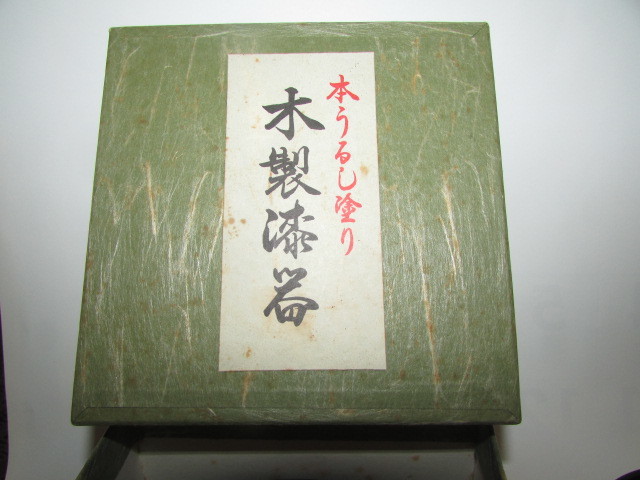 本うるし塗り
木製漆器